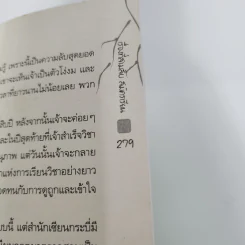 รู้ เพราะนี่เป็นความลับสุดยอด
าจะเห็นเจ้าเป็นตัวโง่งม และ
วลาที่ยาวนานไม่น้อยเลย พวก
สิบปี หลังจากนั้นเจ้าจะค่อยๆ
และในปีสุดท้ายที่เจ้าสำเร็จวิชา
นุภาพ แต่วันนั้นเจ้าจะกลาย
แห่งการเรียนวิชาอย่างยาว
อดทนกับการดูถูกและเข้าใจ
บบนี้ แต่สำนักเซียนกระบี่มี
279